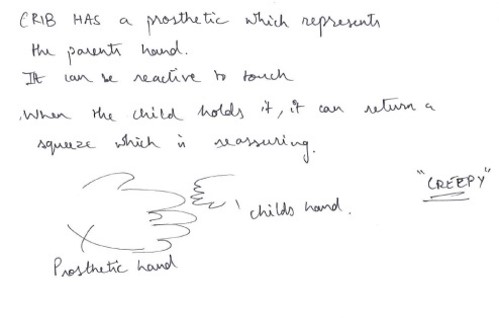 CRIB HAS a prosthetic which represents
the parents hand.
It can be reactive to touch
When the child holds it, it can return a
squeeze which is reassuring.
"CREEPY"
childs hand.
Prosthetic hand